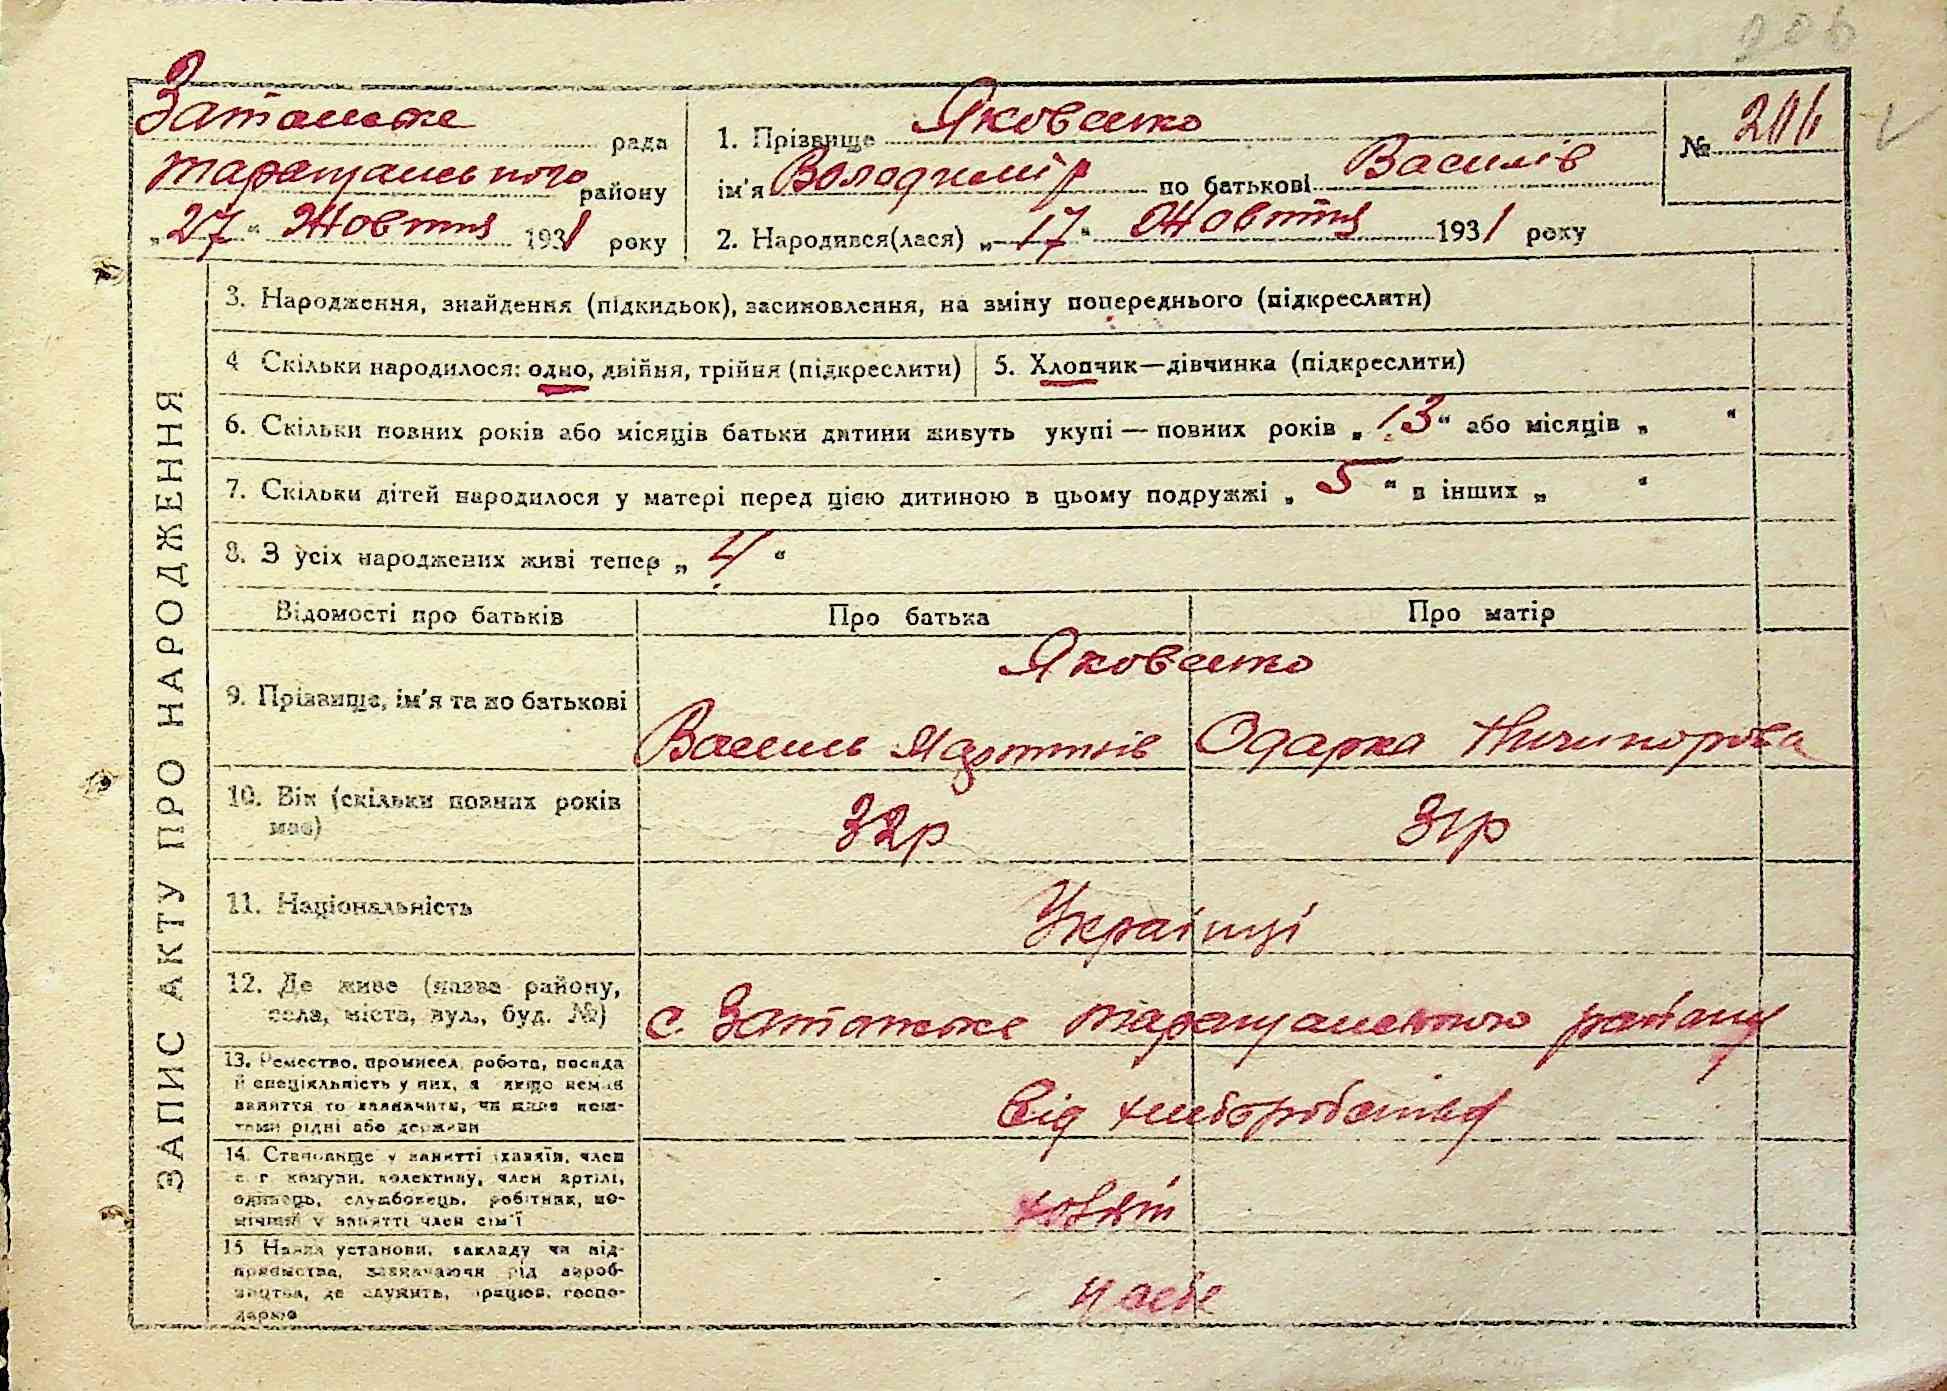 206
Затонське рада
Таращанського району
„27“ Жовтня 1931 року
1. Прізвище Яковенко
ім'я Володимір по батькові Василів
2. Народився(лася) „17“ Жовтня 1931 року
№ 206
ЗАПИС АКТУ ПРО НАРОДЖЕННЯ
3. Народження, знайдення (підкидьок), засиновлення, на зміну попереднього (підкреслити)
4 Скільки народилося: одно, двійня, трійня (підкреслити)
5. Хлопчик—дівчинка (підкреслити)
6. Скільки повних років або місяців батьки дитини живуть укупі — повних років „13“ або місяців „ “
7. Скільки дітей народилося у матері перед цією дитиною в цьому подружжі „5“ в інших „ “
8. З усіх народжених живі тепер „4“
Відомості про батьків Про батька Про матір
9. Прізвище, ім'я та по батькові
Яковенко
Василь Мартинів Одарка Ничипорова
10. Вік (скільки повних років
має)
32р 31р
11. Національність
Українці
12. Де живе (назва району,
села, міста, вул., буд. №)
с. Затонське Таращанського району
13. Ремество, промисел, робота, посада
й спеціяльність у них, а якщо немає
заняття то зазначити, чи живе кош-
тами рідні або держави
Від хліборобства
14. Становище у занятті (хазяїн, член
с. г. комуни, колективу, член артілі,
одинець, службовець, робітник, по-
мічний у занятті член сім'ї
15 Назва установи, закладу чи під-
приємства, зазначаючи рід вироб-
ництва, де служить, працює, госпо-
дарює
у себе